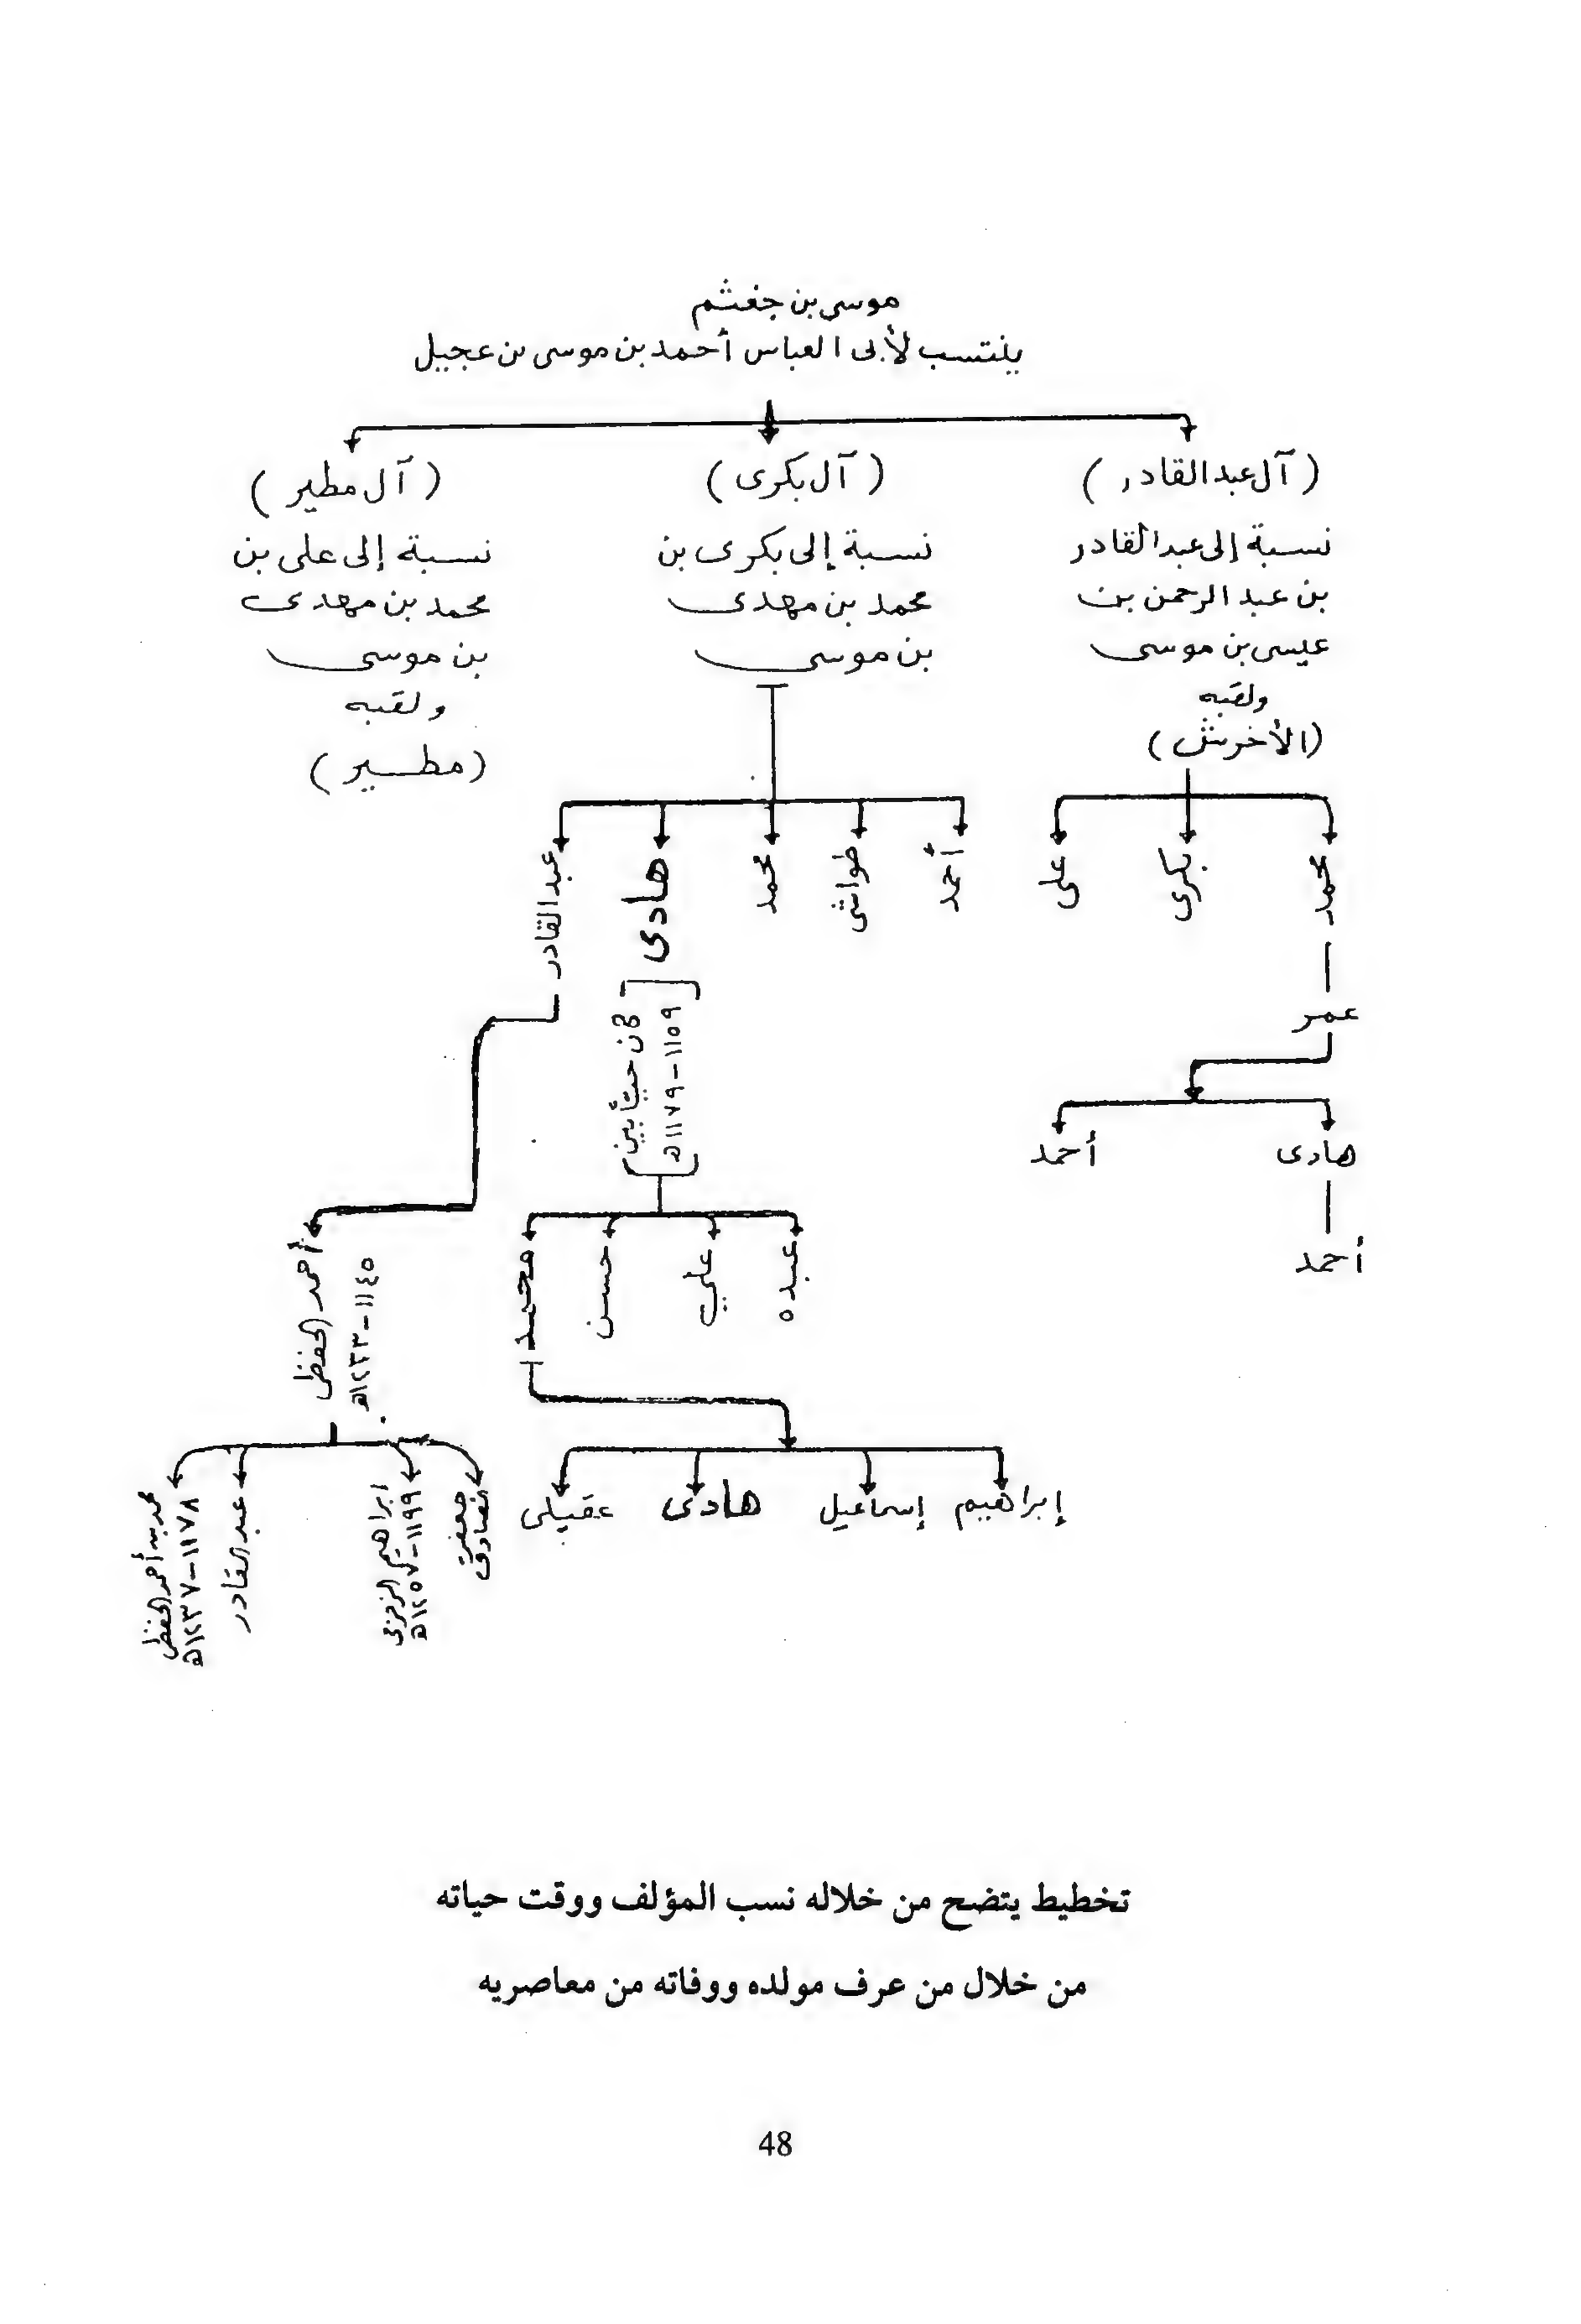 موسى بن جغثم
ينتسب لأبى العباس أحمد بن موسى بن عجيل
( آل عبد القادر )
نسبة إلى عبد القادر
بن عبد الرحمن بن
عيسى بن موسى
ولقبه
(الأخرش)
( آل بكرى )
نسبة إلى بكرى بن
محمد بن مهدى
بن موسى
( آل مطير )
نسبة إلى على بن
محمد بن مهدى
بن موسى
ولقبه
(مطير)
محمد
بكرى
على
عمر
هادى
أحمد
أحمد
أحمد
طواشى
محمد
هادى
[كان حيًّا بين
١١٥٩-١١٧٩هـ]
عبد القادر
عبده
علي
حسن
محمد
إبراهيم
إسماعيل
هادى
عقيلى
أحمد الحفظى
١١٤٥-١٢٣٣هـ
جعفر
الصادق
ابراهيم الزمزمى
١١٩٩-١٢٥٧هـ
عبد القادر
محمد بن أحمد الحفظى
١١٧٨-١٢٣٧هـ
تخطيط يتضح من خلاله نسب المؤلف ووقت حياته
من خلال من عرف مولده ووفاته من معاصريه
48